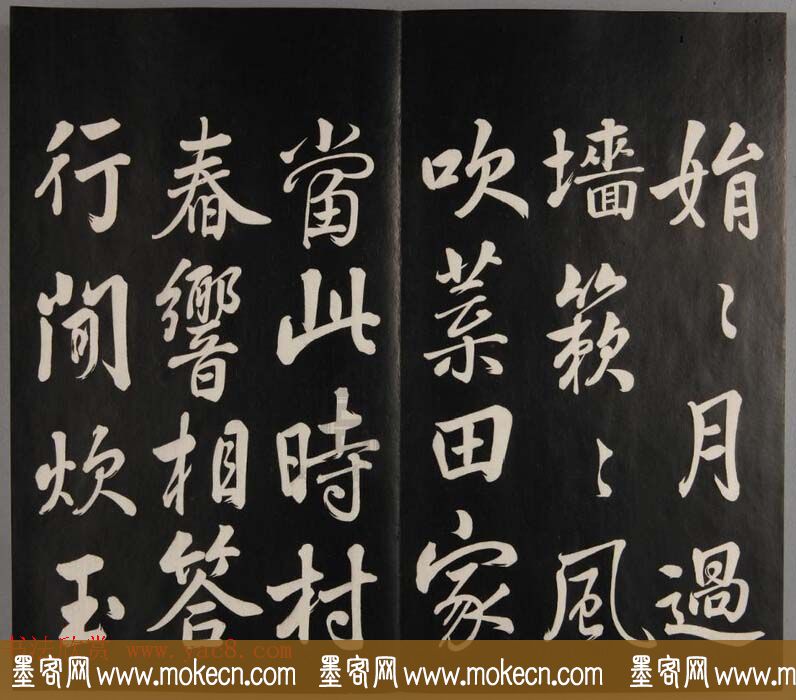 娟〻月過
墻簌〻風
吹葉田家
當此時村
舂響相答
行聞炊玉
书法欣赏 www.yac8.com
墨客网 www.mokecn.com 墨客网 www.mokecn.com 墨客网 www.mokecn.com